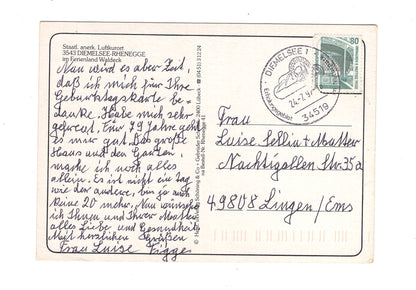 Staatl. anerk. Luftkurort
3543 DIEMELSEE-RHENEGGE
im Ferienland Waldeck
Nun wird es aber Zeit,
daß ich mich für Ihre
Geburtstagskarte be-
danke. Habe mich sehr
gefreut. Für 79 Jahre geht
es mir gut. Das große
Haus und den Garten,
mache ich noch alles
allein. Es ist nicht ein tag
wie der andere, bin ja auch
keine 20 mehr. Nun wünsche
ich Ihnen und Ihrer Mutter
alles Liebe und Gesundheit
Mit herzlichen Grüßen
Frau Luise Figge
DIEMELSEE 1
34519
80
Frau
Luise Sellin + Mutter
Nachtigallen Str. 35a
49808 Lingen / Ems